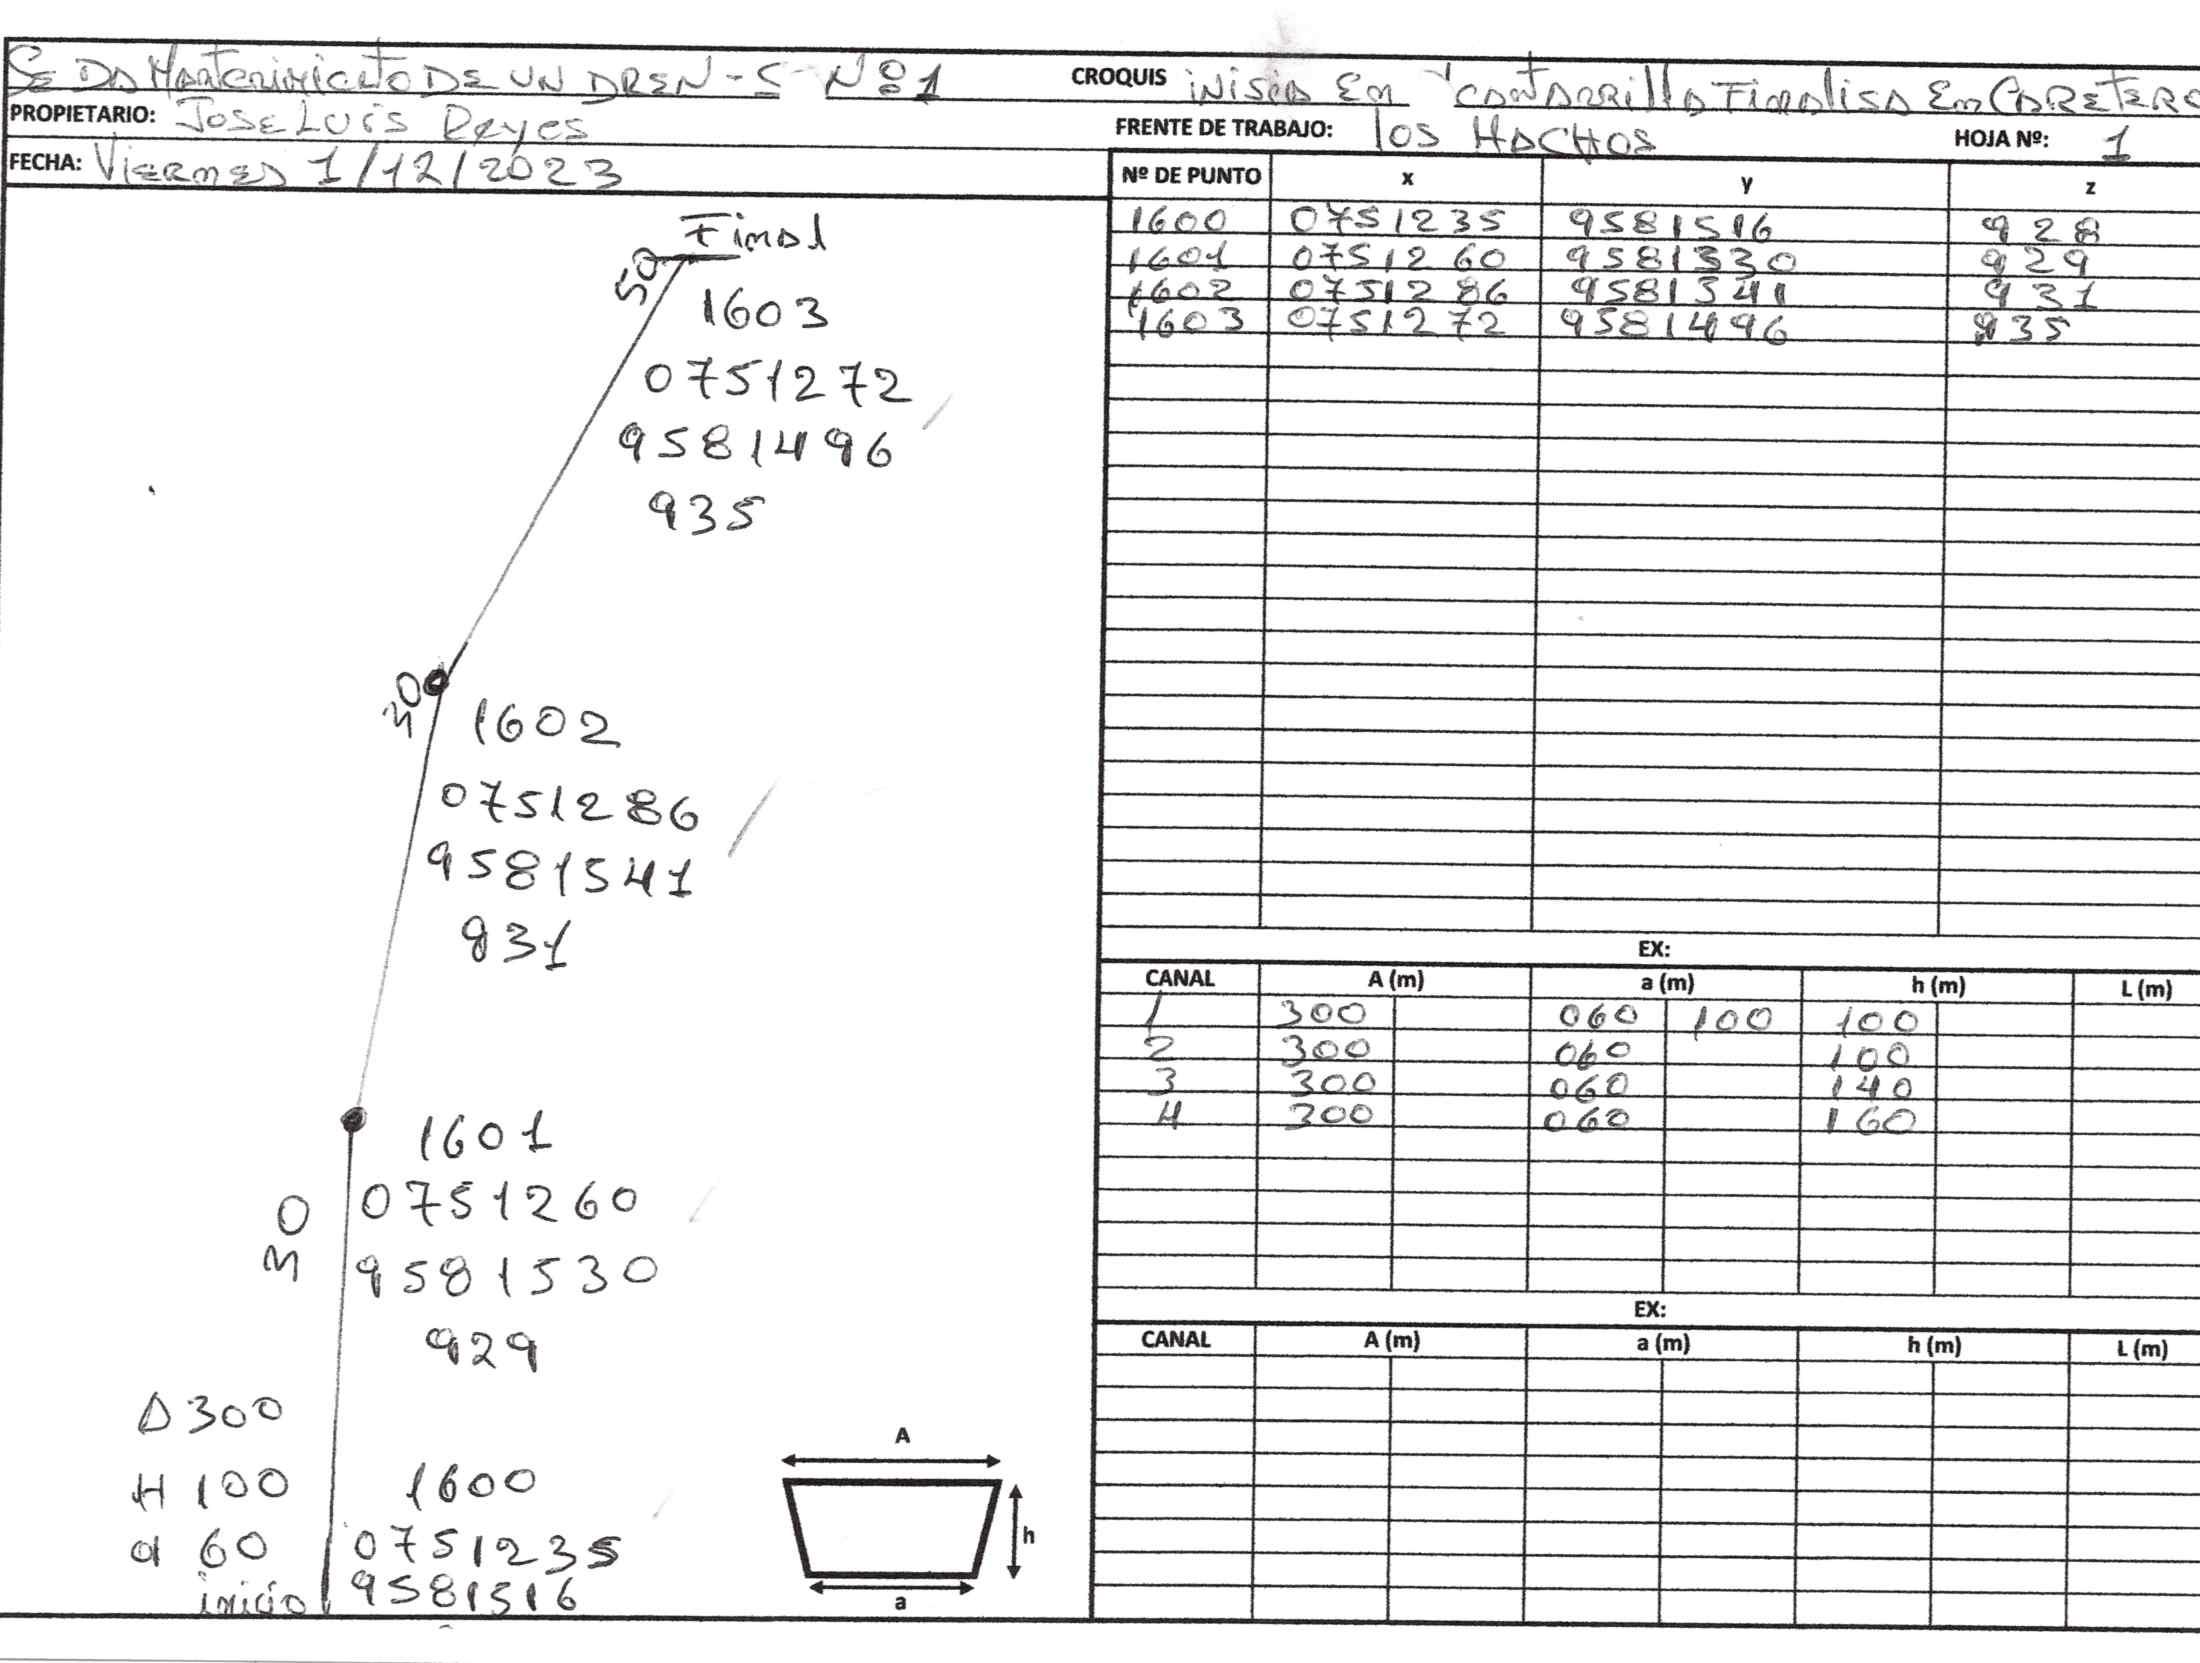 SE DA MANTENIMIENTO DE UN DREN-S Nº1
CROQUIS iNiSiA Em CANTARRillA FiNAliSA Em CARETERA
PROPIETARIO: JOSE LUIS Reyes
FRENTE DE TRABAJO: los HACHOS
HOJA Nº: 1
FECHA: Viernes 1/12/2023
Nº DE PUNTO x y z
1600 0751235 9581516 928
1601 0751260 9581530 929
1602 0751286 9581541 931
1603 0751272 9581496 935
Final
50
1603
0751272
9581496
935
30
1602
0751286
9581541
931
1601
0751260
30
9581530
929
Δ300
H 100
1600
a 60
0751235
inicio
9581516
A
h
a
EX:
CANAL A (m) a (m) h (m) L (m)
1 300 060 100 100
2 300 060 100
3 300 060 140
4 300 060 160
EX:
CANAL A (m) a (m) h (m) L (m)